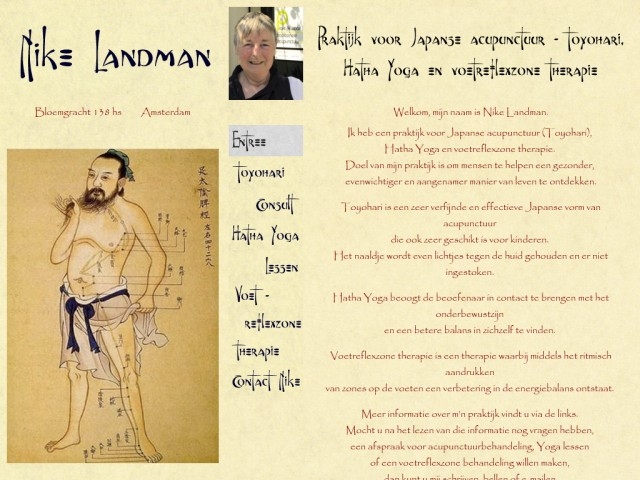 Nike Landman
Bloemgracht 138 hs Amsterdam
足太陰脾經
左右四十二穴
Entree
Toyohari
Consult
Hatha Yoga
Lessen
Voet -
reflexzone
Therapie
Contact Nike
Praktijk voor Japanse acupunctuur - Toyohari,
Hatha Yoga en voetreflexzone therapie
Welkom, mijn naam is Nike Landman.
Ik heb een praktijk voor Japanse acupunctuur (Toyohari),
Hatha Yoga en voetreflexzone therapie.
Doel van mijn praktijk is om mensen te helpen een gezonder,
evenwichtiger en aangenamer manier van leven te ontdekken.
Toyohari is een zeer verfijnde en effectieve Japanse vorm van
acupunctuur
die ook zeer geschikt is voor kinderen.
Het naaldje wordt even lichtjes tegen de huid gehouden en er niet
ingestoken.
Hatha Yoga beoogt de beoefenaar in contact te brengen met het
onderbewustzijn
en een betere balans in zichzelf te vinden.
Voetreflexzone therapie is een therapie waarbij middels het ritmisch
aandrukken
van zones op de voeten een verbetering in de energiebalans ontstaat.
Meer informatie over m'n praktijk vindt u via de links.
Mocht u na het lezen van die informatie nog vragen hebben,
een afspraak voor acupunctuurbehandeling, Yoga lessen
of een voetreflexzone behandeling willen maken,
dan kunt u mij schrijven, bellen of e-mailen